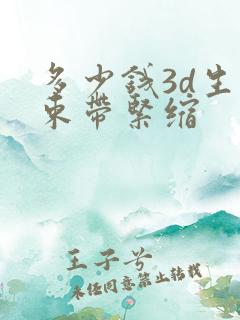 多少钱3d生
束带紧缩
王子兮
未经同意禁止转载